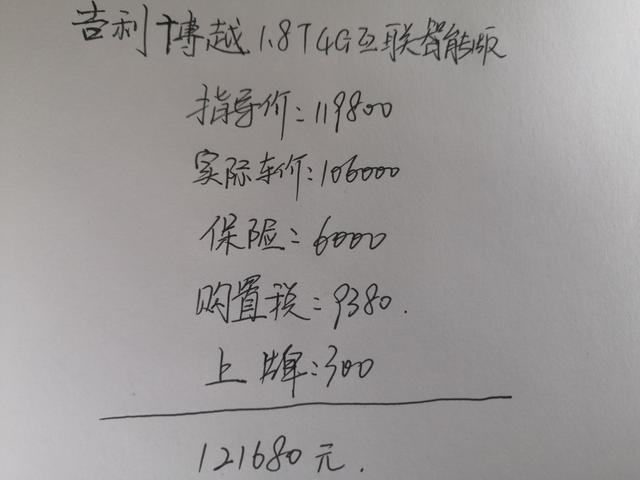 吉利博越1.8T4G互联智能版
指导价:119800
实际车价:106000
保险:6000
购置税:9380.
上牌:300
121680元.